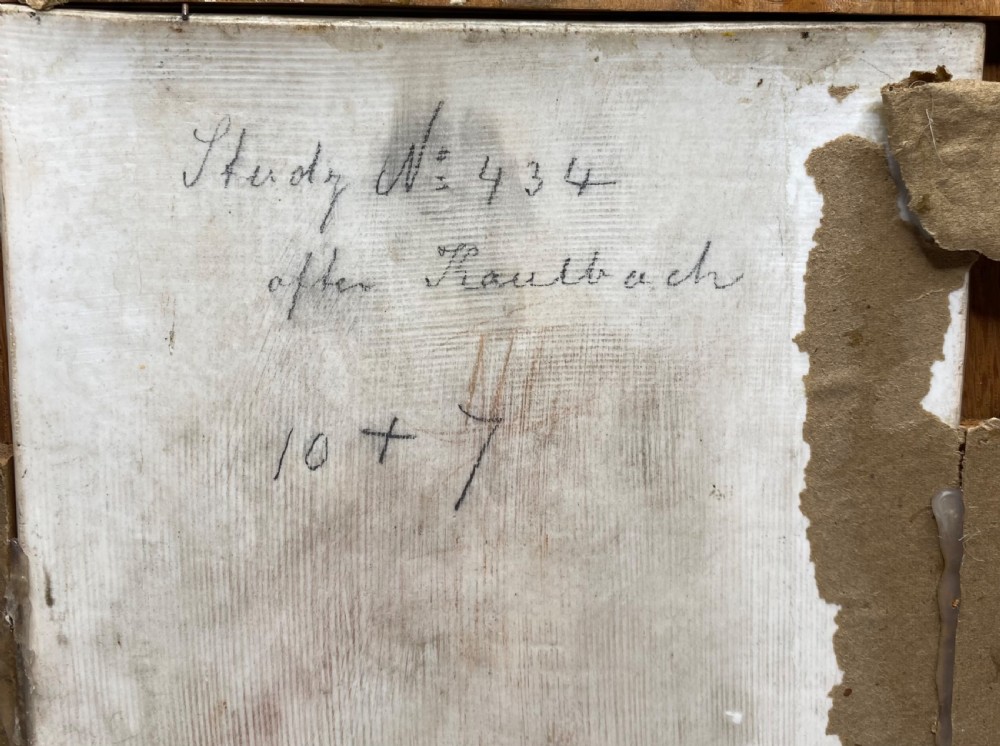 Study No 434
after Kaulbach
10 + 7